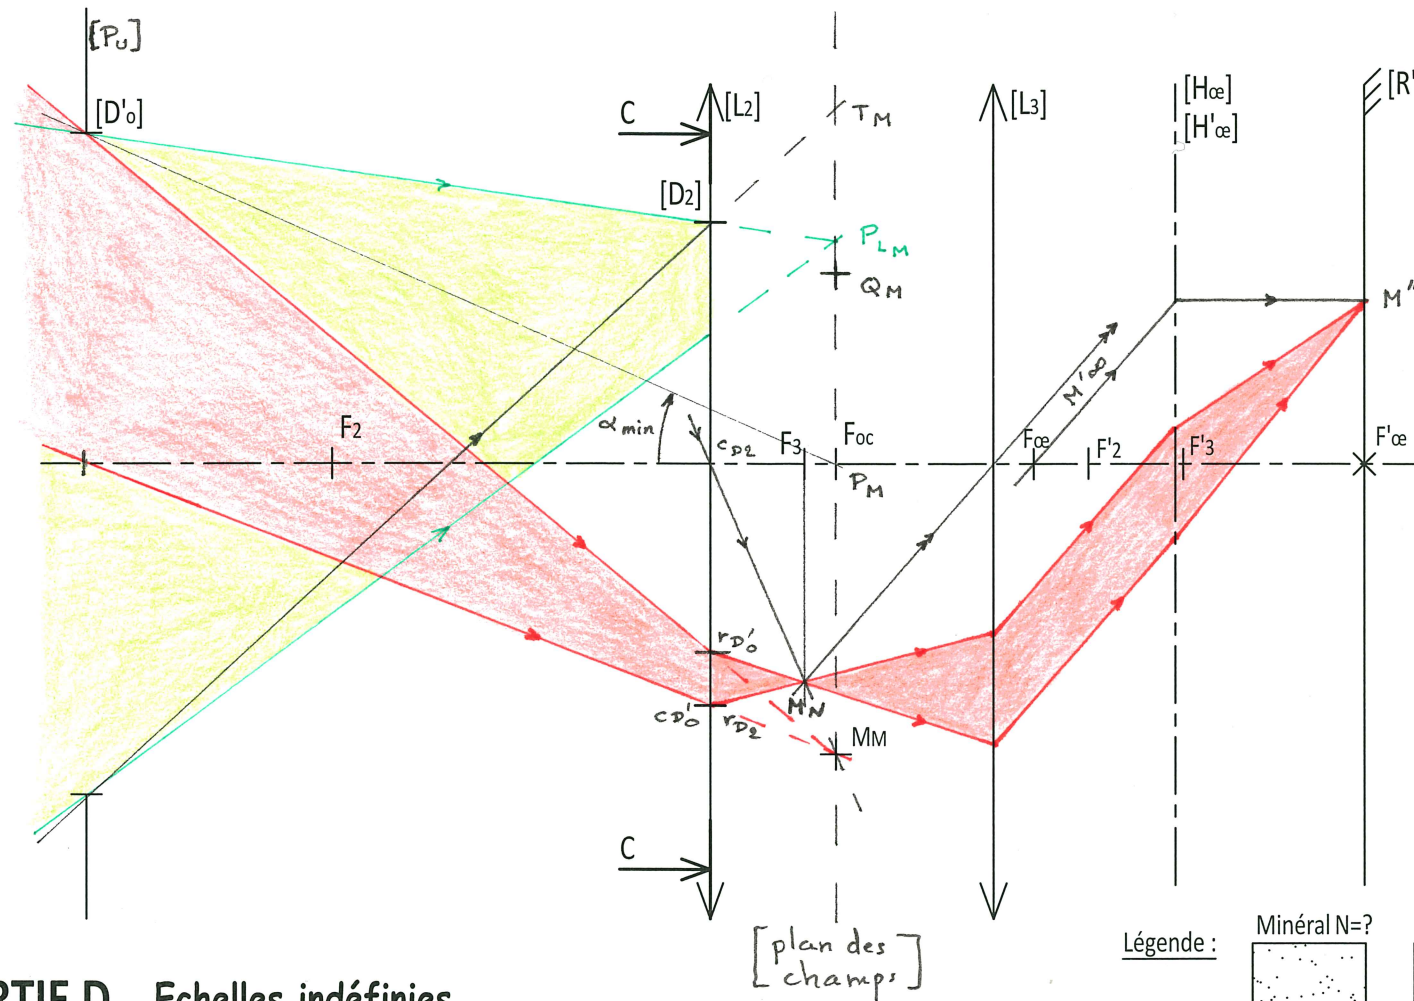 [Pu]
[D'o]
C
[L2]
TM
[L3]
[Hœ]
[H'œ]
[R'
[D2]
PLM
QM
M'∞
M"
αmin
F2
CD2
F3
Foc
Fœ
F'2
F'3
F'œ
PM
rD'o
M'N
CD'o
rD2
MM
C
[plan des
champs]
Légende :
Minéral N=?
RTIE D Echelles indéfinies